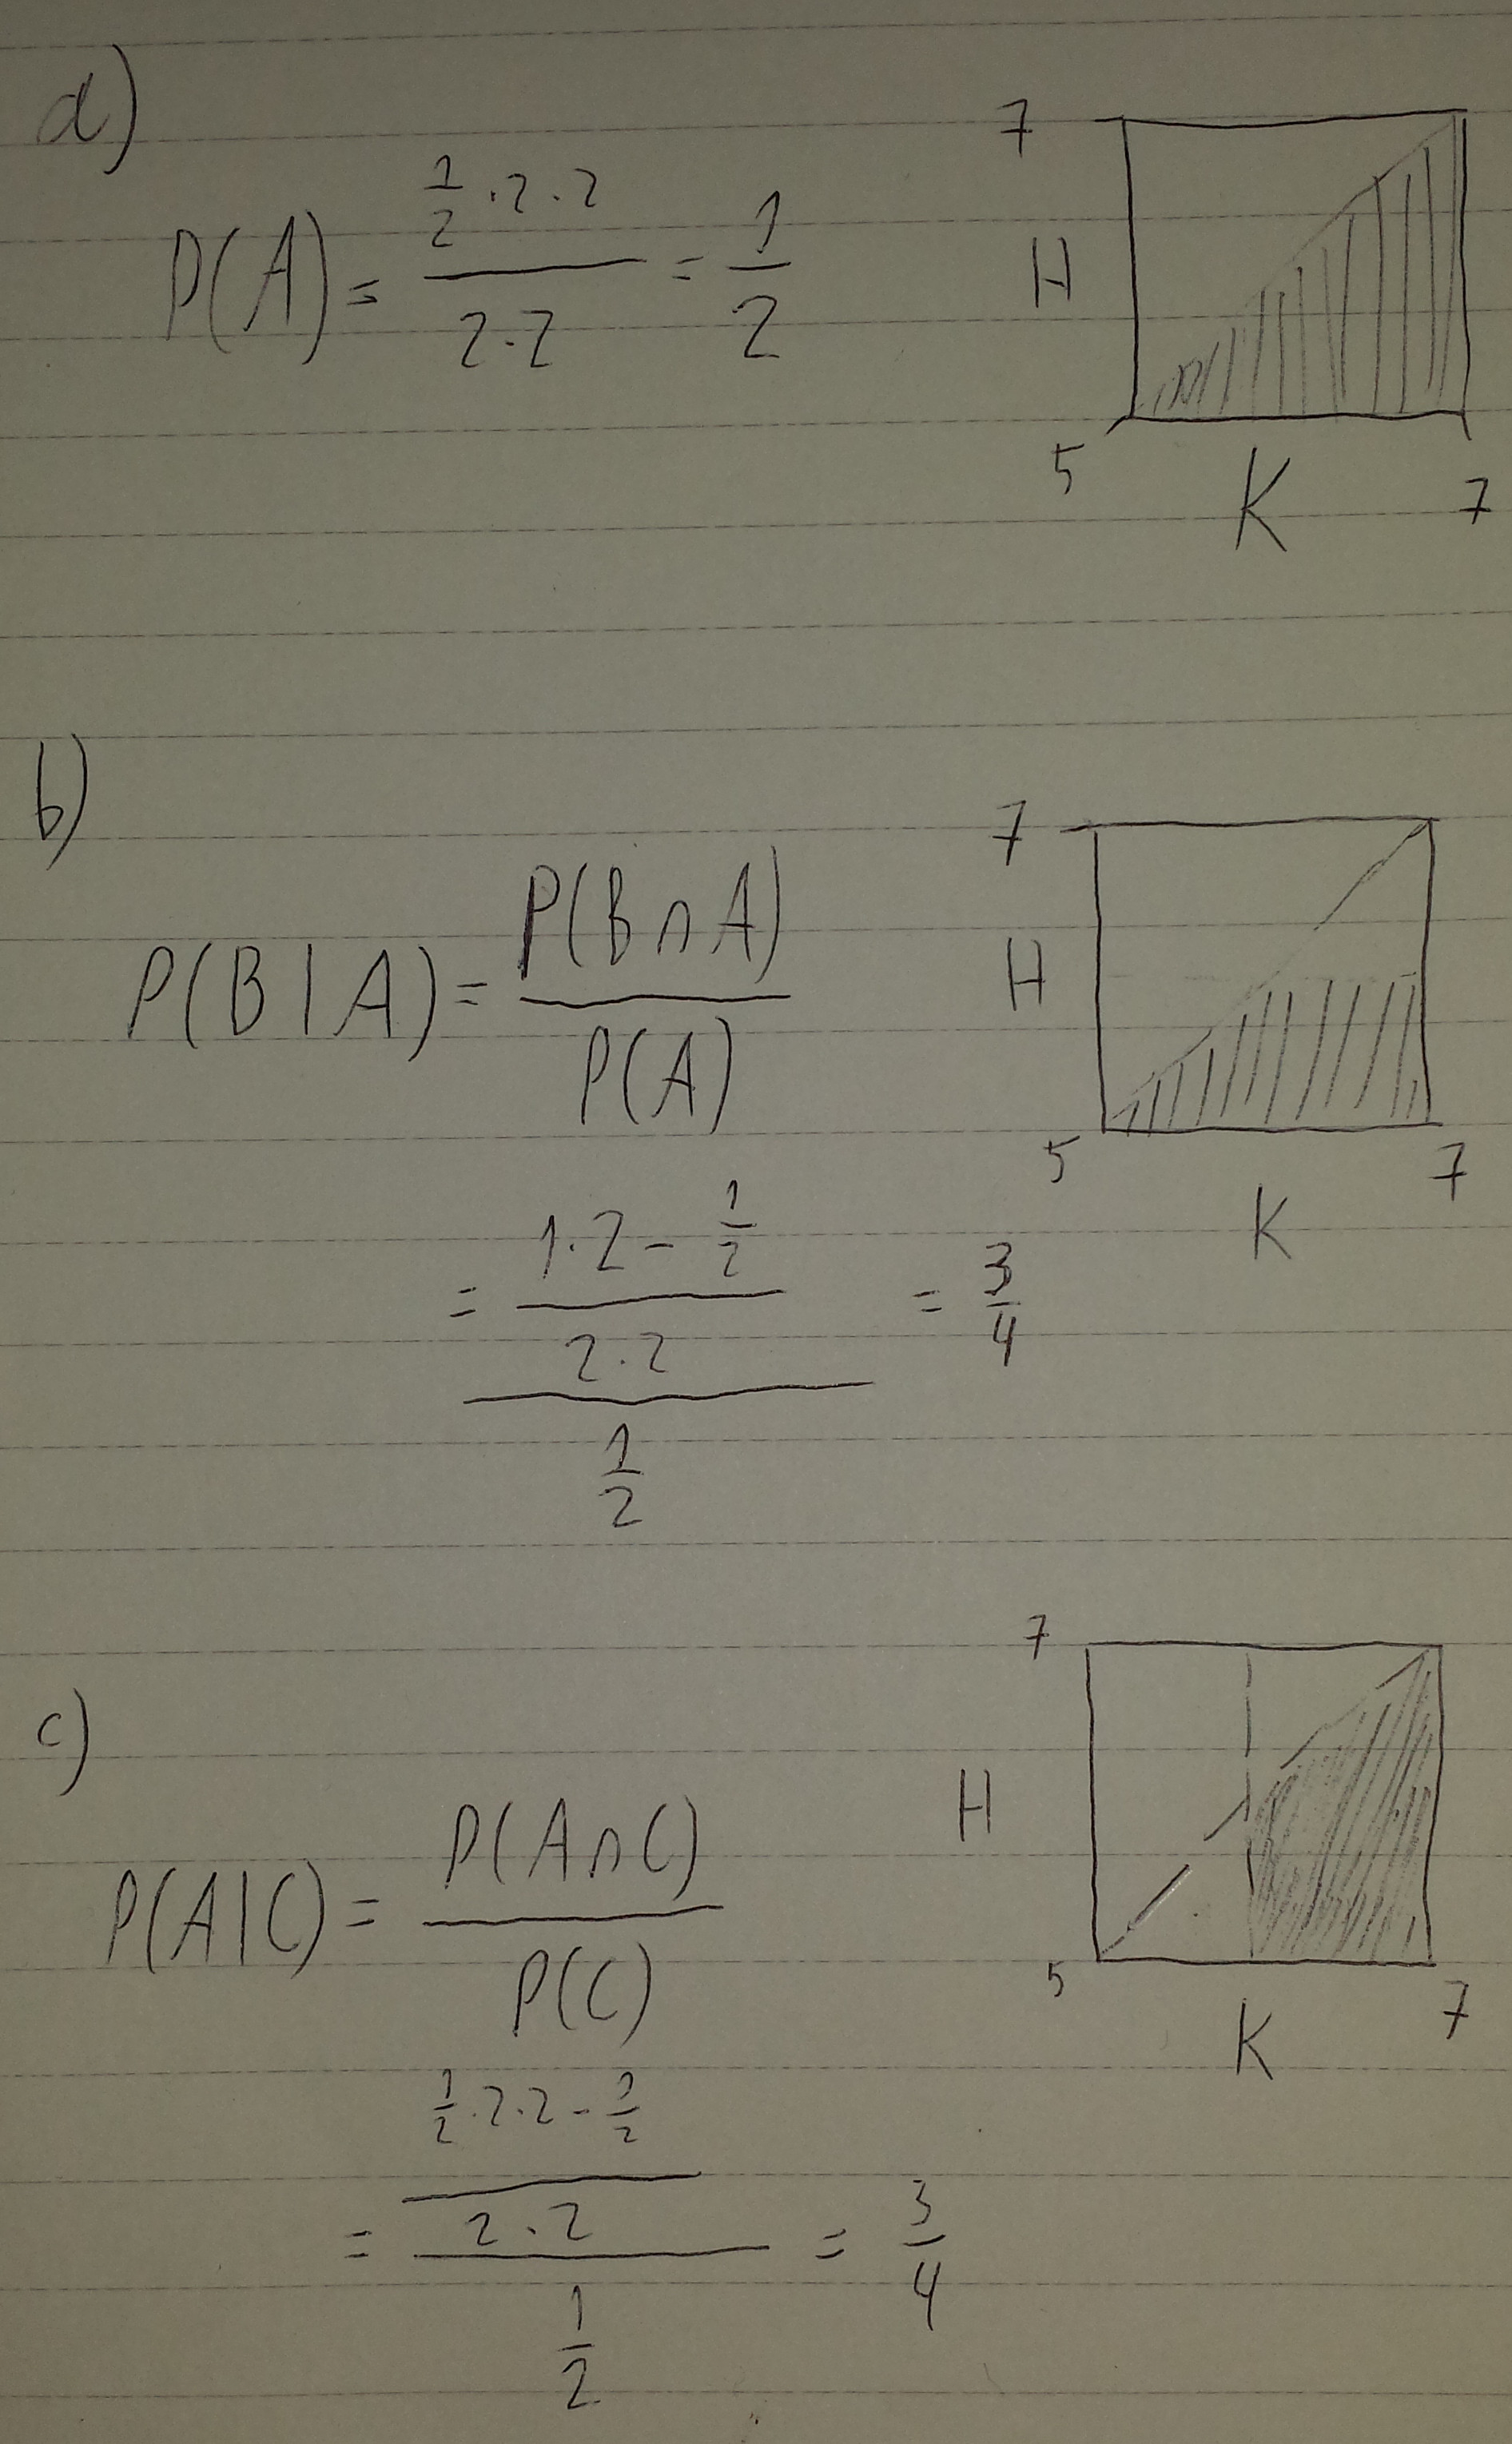 a)
P(A) = (1/2 · 2 · 2)/(2 · 2) = 1/2
7
H
5
K
7
b)
P(B|A) = P(B∩A)/P(A)
= ((1 · 2 - 1/2)/(2 · 2))/(1/2) = 3/4
7
H
5
K
7
c)
P(A|C) = P(A∩C)/P(C)
= ((1/2 · 2 · 2 - 1/2)/(2 · 2))/(1/2) = 3/4
7
H
5
K
7